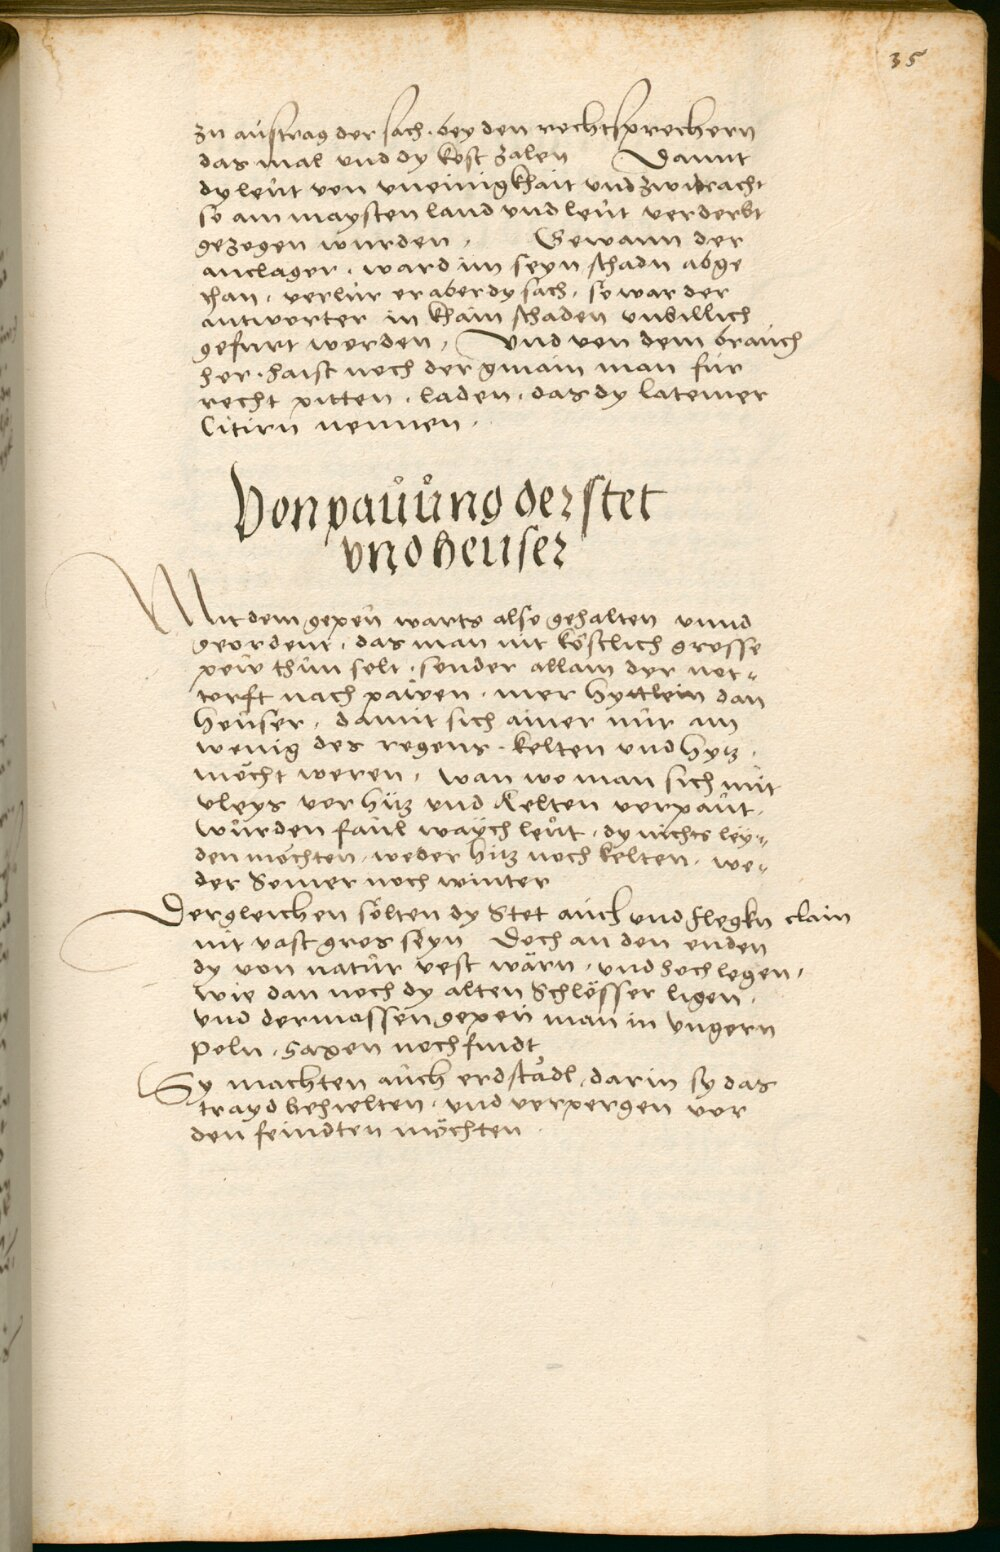 35
zu austrag der sach. bey den rechtsprechern
das mal vnd dy kost zalen Damit
dy leut von vneinigkhait vnd zwitracht
so am maysten land vnd leut verderbt
gezogen wurden, Gewann der
anclager. ward im seyn schadn abge
than, verlur er aber dy sach, so war der
antworter in khain schaden vnbillich
gefurt worden, Vnd von dem brauch
her. haist noch der gmain man für
recht pitten, laden, das dy lateiner
Citirn nennen.
Von paůůng der stet
vnd heuser
Mit dem gepeu warts also gehalten vnnd
geordent, das man nit köstlich grosse
peu thun solt, sonder allain dyr not-
torft nach pawen, mer hyttlein dan
heuser, damit sich ainer nur am
wenig des regens, kelten vnd hytz,
möcht weren, wan wo man sich mit
vleys vor hitz vnd Kelten verpaut,
wurden faul waych leut, dy nichts ley-
den möchten, weder hitz noch kelten, we-
der Somer noch winter
Dergleichen solten dy Stet auch vnd flegkn clain
nit vast gros seyn Doch an den enden
dy von natur vest wärn, vnd hoch legen,
wie dan noch dy alten Schlösser ligen,
vnd dermassen gepeu man in vngern
poln, saxen noch findt
Sy machten auch erdstådl, darin sy das
trayd behielten, vnd verpergen vor
den feindten möchten.